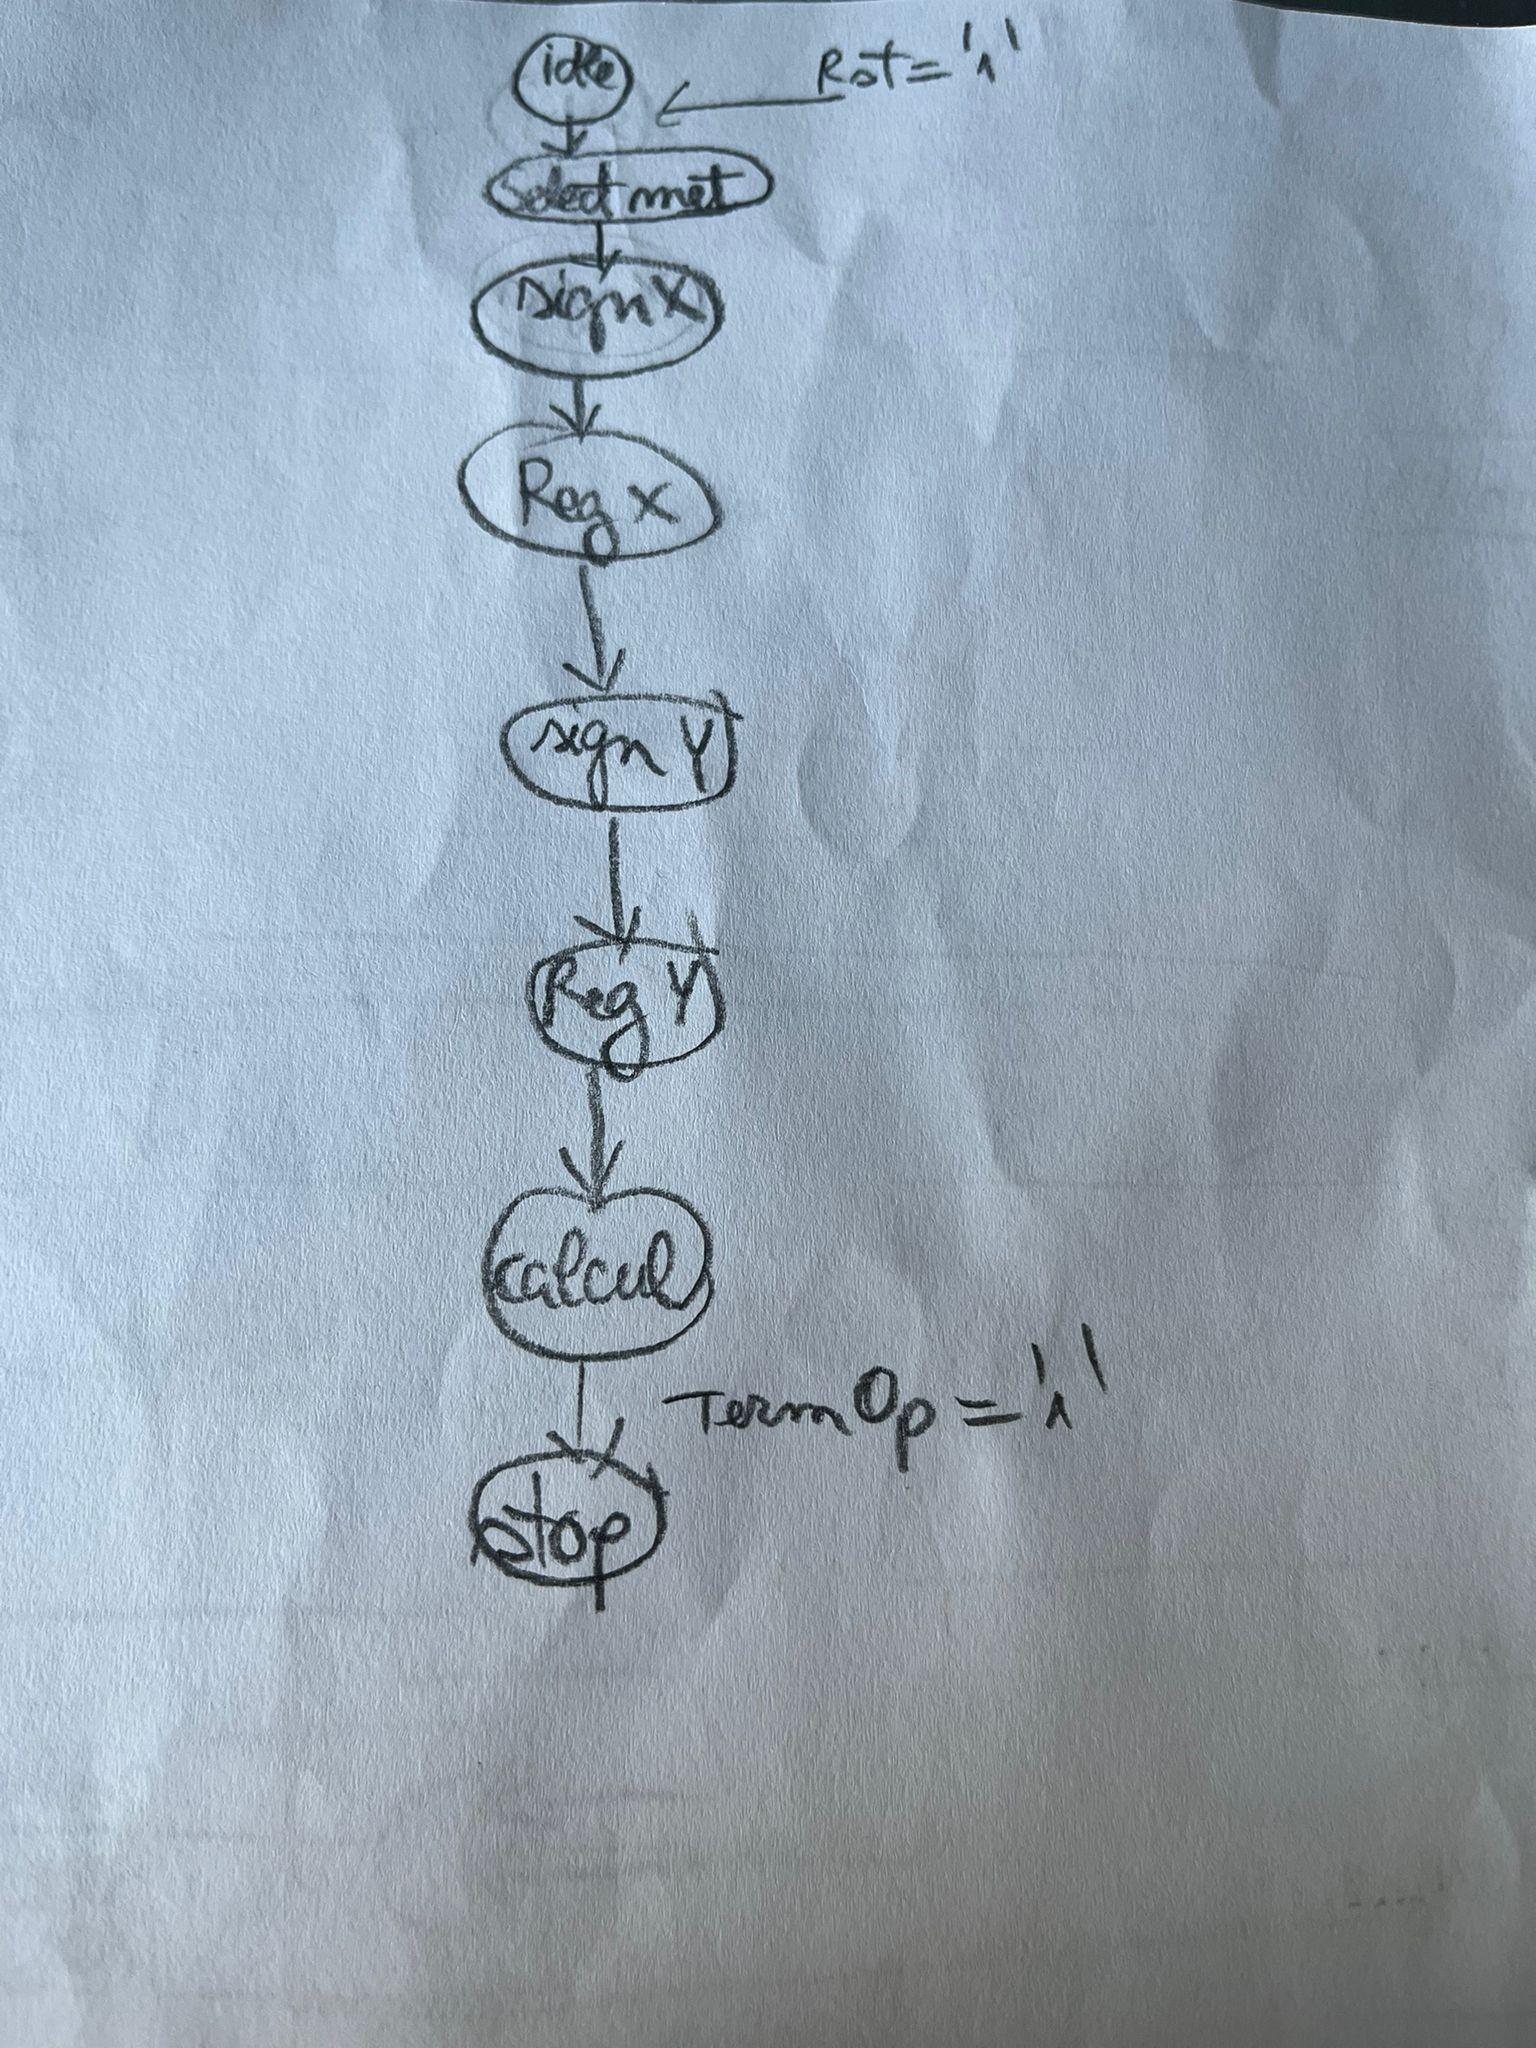 idle
Rst = '1'
Select met
sign X
Reg X
sign Y
Reg Y
calcul
Term Op = '1'
stop